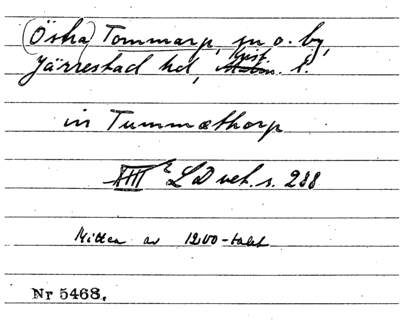 (Östra) Tommarp, sn o. by,
Järrestad hd, Krist. l.
in Tummæthorp
XIII 2 LD vet. s. 288
Mitten av 1200-talet
Nr 5468.